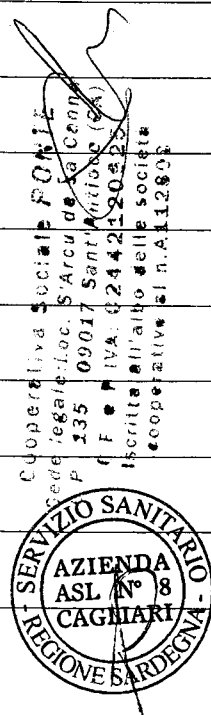 Cooperativa Sociale PONTE
Sede legale: Loc. S'Arcu de Sa Cann
P 135 09017 Sant'Antioco (CA)
C F e P IVA: 02442120925
Iscritta all'albo delle società
cooperative al n. A112808
SERVIZIO SANITARIO
AZIENDA
ASL N° 8
CAGLIARI
- REGIONE SARDEGNA -